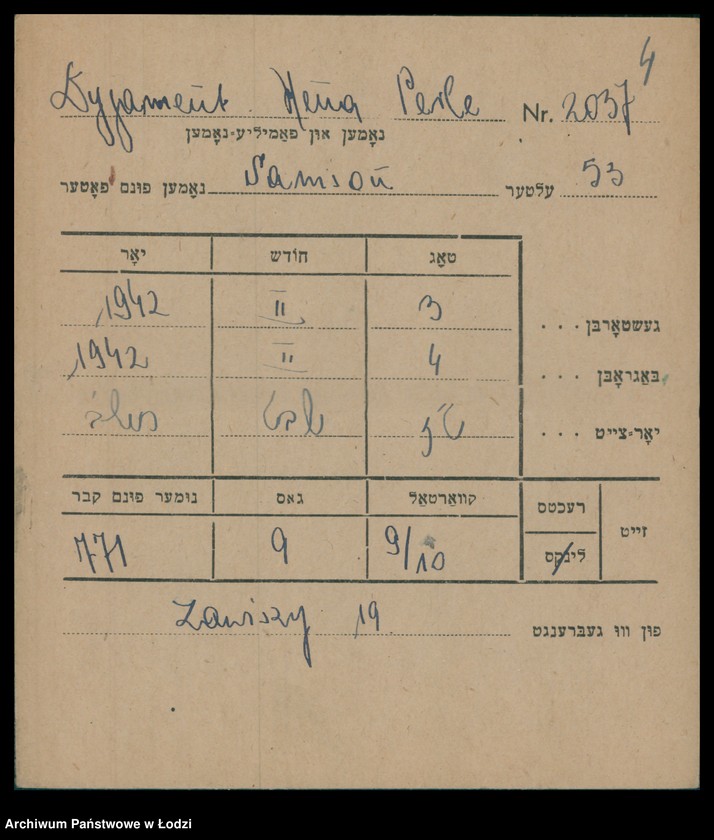 4
Dyjament Hena Perle Nr. 2037
נאָמען און פאַמיליע-נאָמען
נאָמען פונם פאָטער Samson עלטער 53
טאָג חודש יאָר
געשטאָרבן . . . 3 II 1942
באַגראָבן . . . 4 II 1942
יאָר-צייט . . . ט"ז שבט
זייט רעכטס לינקס קוואַרטאַל גאס נומער פונם קבר
9/10 9 771
פון וואו געברענגט Zawiszy 19
Archiwum Państwowe w Łodzi